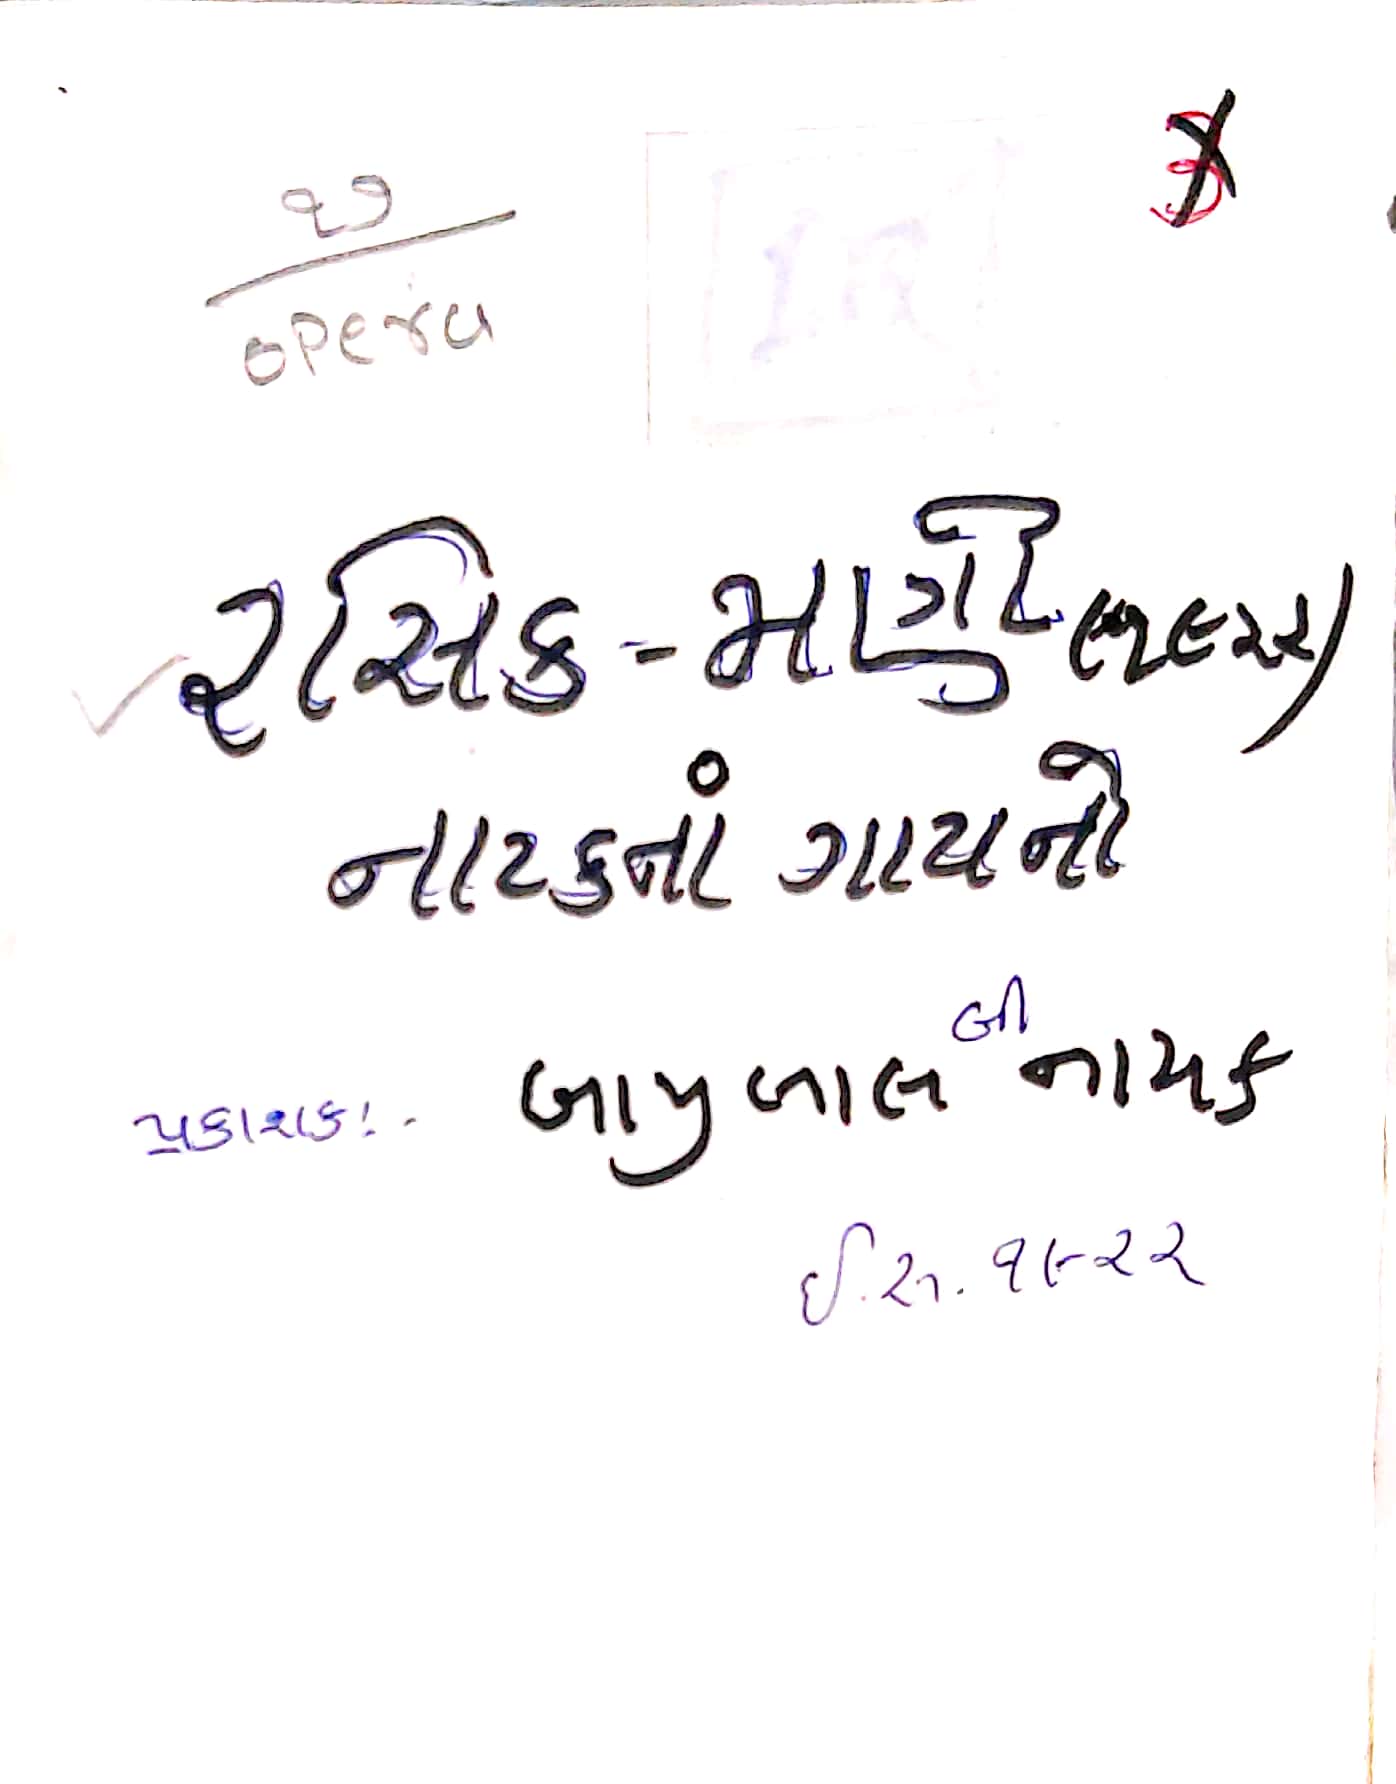 ૨૭
opera
રસિક-મણી (૧૯૨૨)
નાટકનાં ગાયનો
પ્રકાશક:- બાપુલાલ બી નાયક
ઈ.સ. ૧૯૨૨